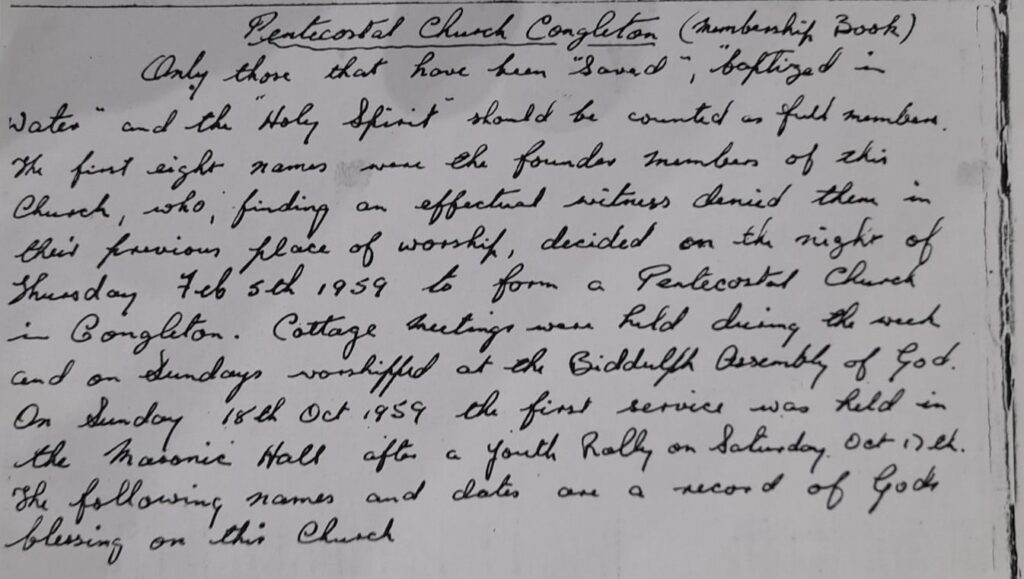 Pentecostal Church Congleton (Membership Book)
Only those that have been "Saved", "baptized in
Water" and the "Holy Spirit" should be counted as full members.
The first eight names were the founder members of this
Church, who, finding an effectual witness denied them in
their previous place of worship, decided on the night of
Thursday Feb 5th 1959 to form a Pentecostal Church
in Congleton. Cottage meetings were held during the week
and on Sundays worshipped at the Biddulph Assembly of God.
On Sunday 18th Oct 1959 the first service was held in
the Masonic Hall after a Youth Rally on Saturday Oct 17th.
The following names and dates are a record of Gods
blessing on this Church